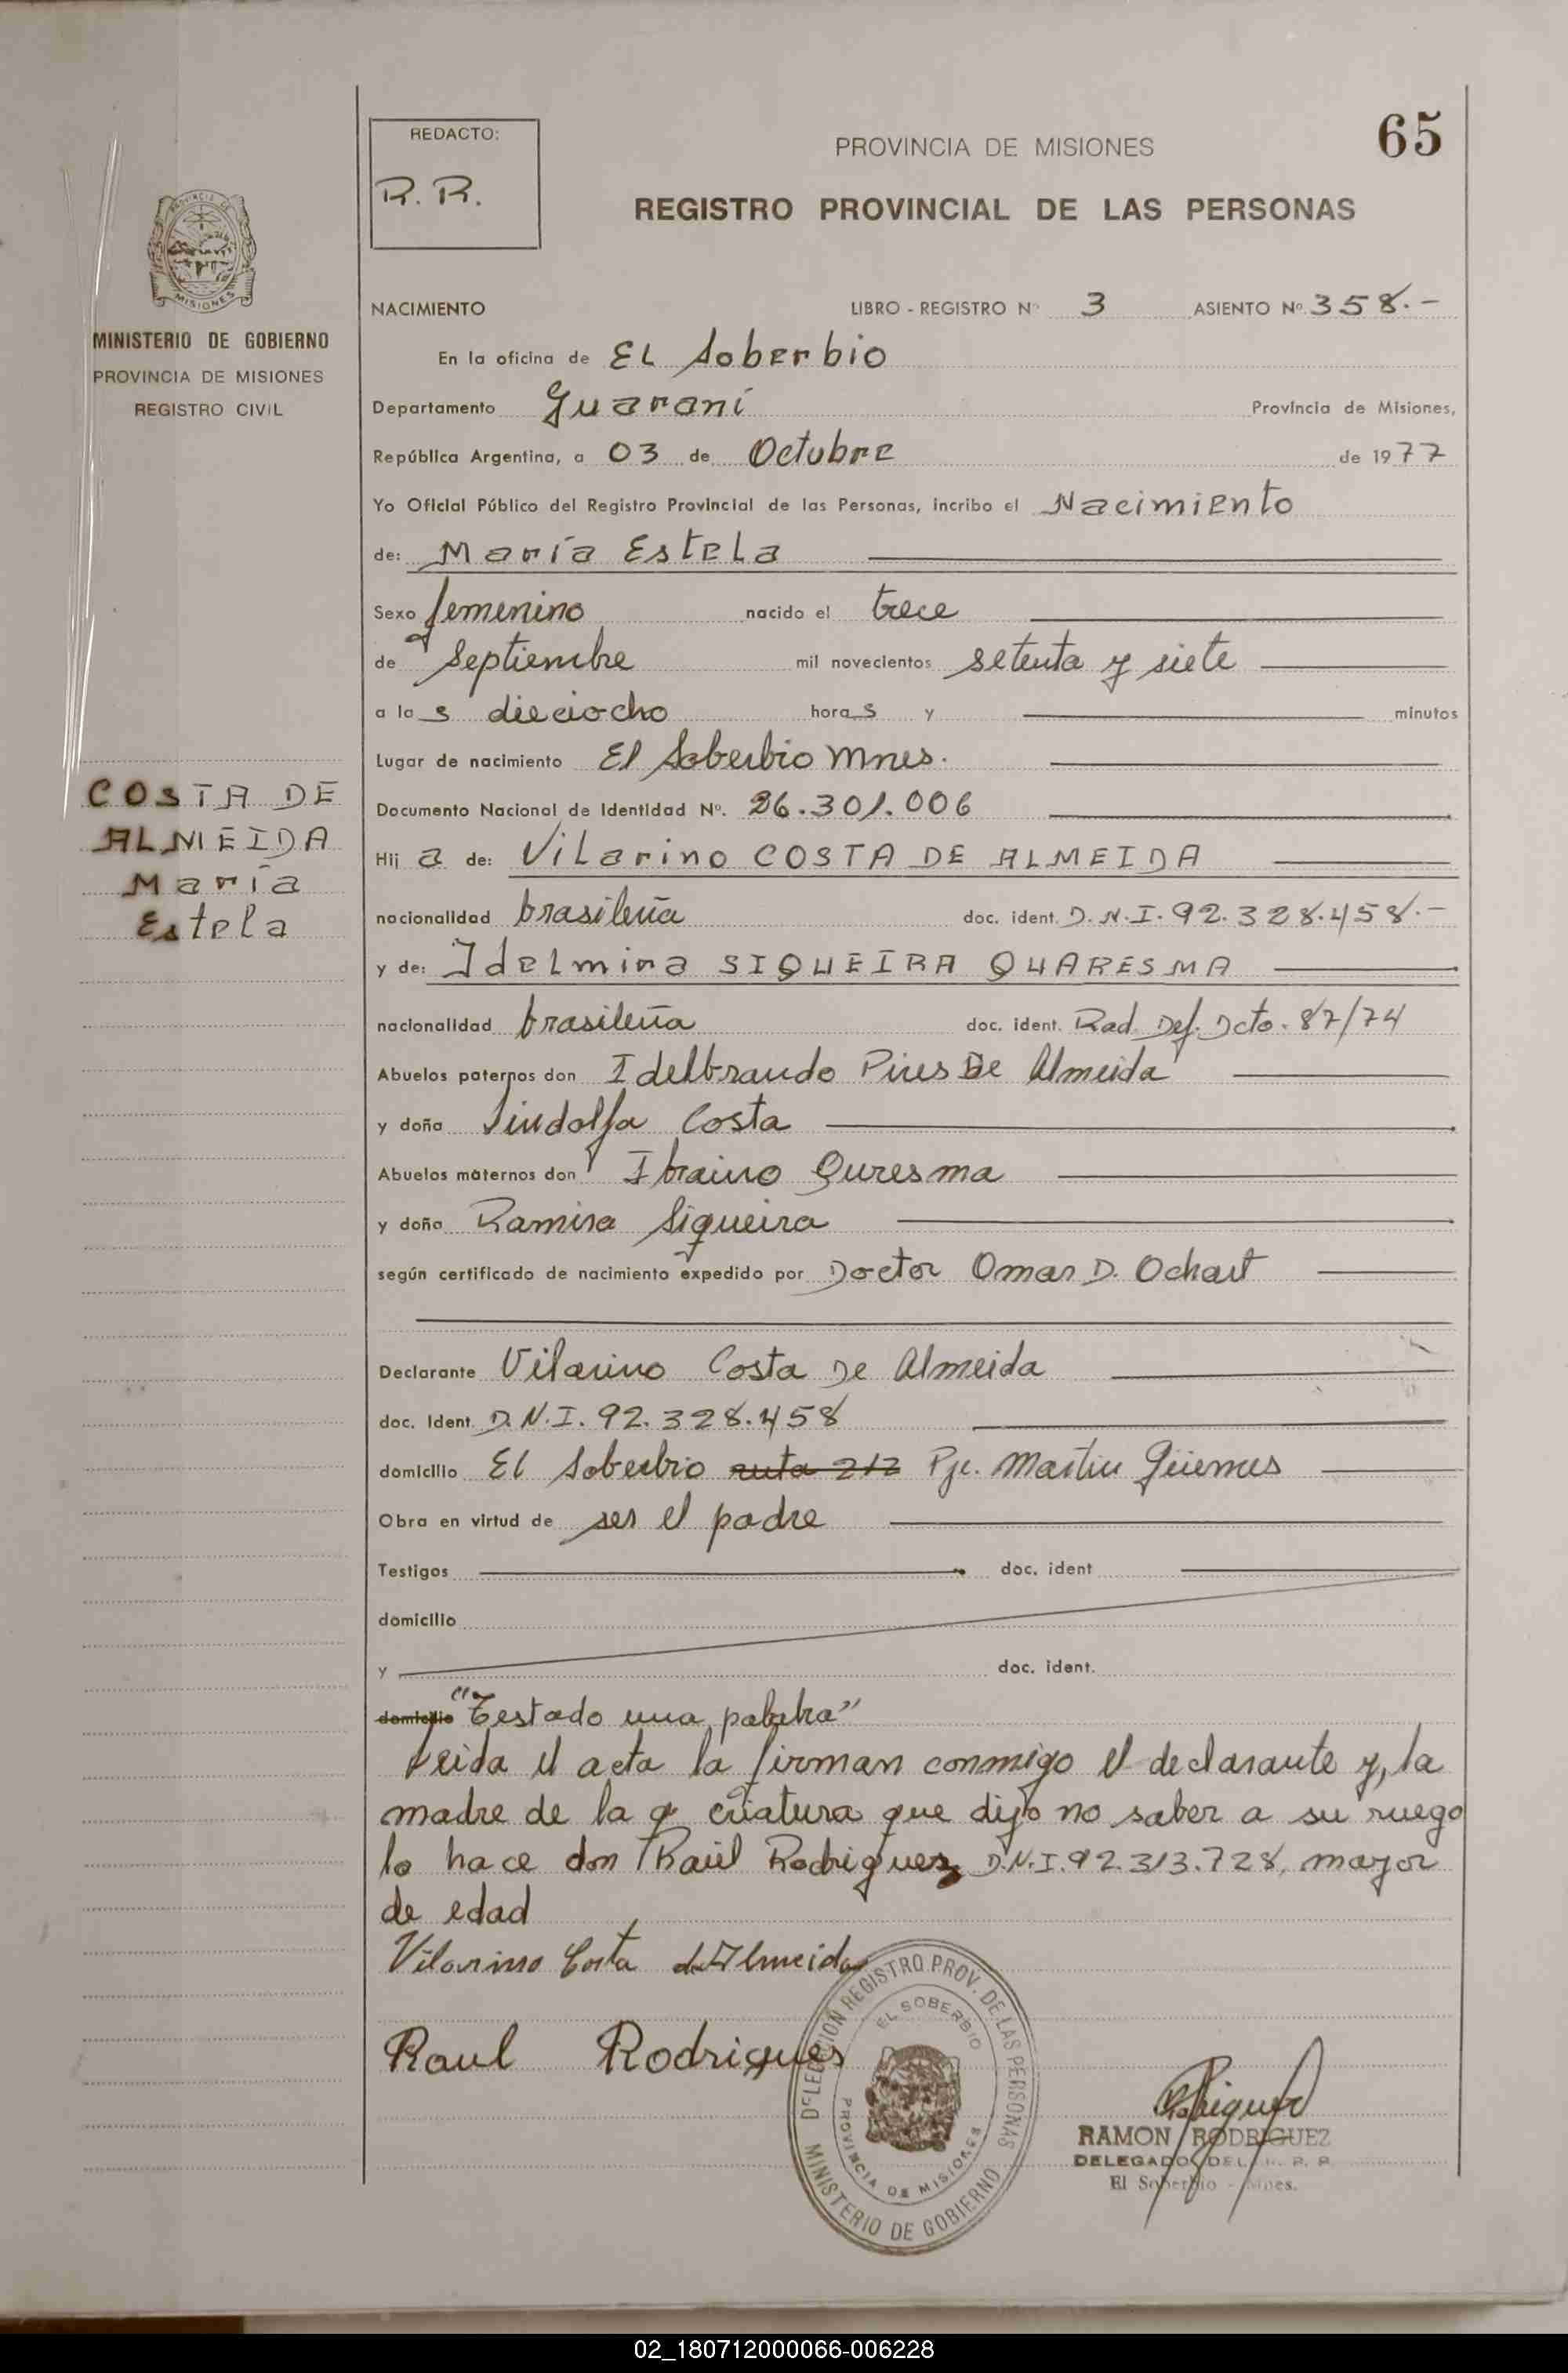 65
REDACTO:
R. R.
PROVINCIA DE MISIONES
REGISTRO PROVINCIAL DE LAS PERSONAS
PROVINCIA DE
MISIONES
MINISTERIO DE GOBIERNO
PROVINCIA DE MISIONES
REGISTRO CIVIL
NACIMIENTO LIBRO - REGISTRO Nº 3 ASIENTO Nº 358.-
En la oficina de EL Soberbio
Departamento Guaraní Provincia de Misiones,
República Argentina, a 03 de Octubre de 1977
Yo Oficial Público del Registro Provincial de las Personas, incribo el Nacimiento
de: María Estela
Sexo femenino nacido el trece
de Septiembre mil novecientos setenta y siete
a las dieciocho horas y minutos
Lugar de nacimiento El Soberbio Mnes.
Documento Nacional de Identidad Nº. 26.301.006
COSTA DE
ALMEIDA
María
Estela
Hija de: Vilarino COSTA DE ALMEIDA
nacionalidad brasileña doc. ident. D.N.I. 92.328.458.-
y de: Idelmina SIQUEIRA QUARESMA
nacionalidad brasileña doc. ident. Rad. Def. Dcto. 87/74
Abuelos paternos don Idelbrando Pires De Almeida
y doña Lindolfa Costa
Abuelos maternos don Ibraino Quresma
y doña Ramira Siqueira
según certificado de nacimiento expedido por Doctor Omar D. Ochart
Declarante Vilarino Costa De Almeida
doc. Ident. D.N.I. 92.328.458
domicilio El Soberbio ruta 212 Pje. Martin Güemes
Obra en virtud de ser el padre
Testigos doc. ident
domicilio
y doc. ident.
domicilio "Testado una palabra"
Leida el acta la firman conmigo el declarante y, la
madre de la criatura que dijo no saber a su ruego
lo hace don Raúl Rodrigues D.N.I. 92.313.728, mayor
de edad
Vilarino Costa de Almeida
Raul Rodrigues
DELEGACION REGISTRO PROV. DE LAS PERSONAS
EL SOBERBIO
PROVINCIA DE MISIONES
MINISTERIO DE GOBIERNO
Rodriguez
RAMON RODRIGUEZ
DELEGADO DEL R. P. P.
El Soberbio - Mnes.
02_180712000066-006228